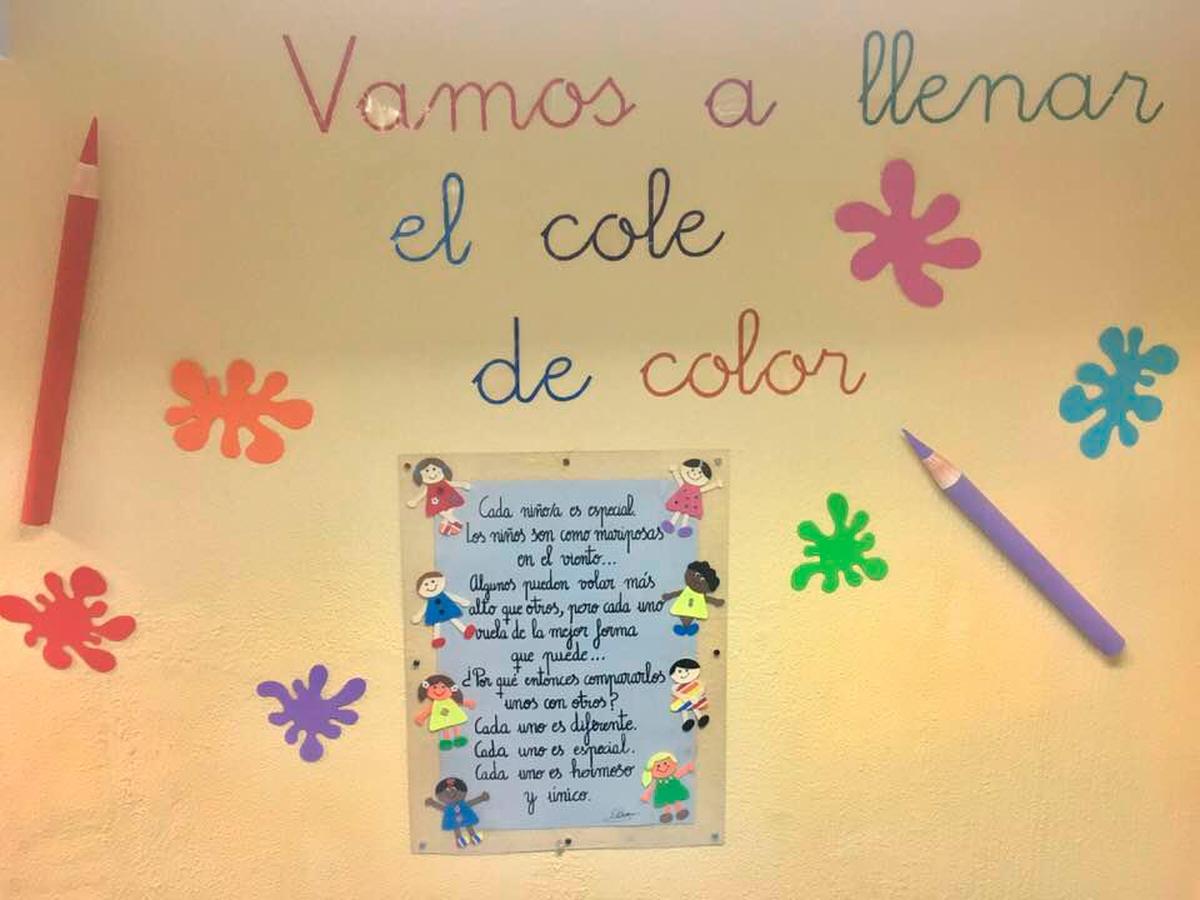 Vamos a llenar
el cole
de color
Cada niño/a es especial.
Los niños son como mariposas
en el viento...
Algunos pueden volar más
alto que otros, pero cada uno
vuela de la mejor forma
que puede...
¿Por qué entonces compararlos
unos con otros?
Cada uno es diferente.
Cada uno es especial.
Cada uno es hermoso
y único.